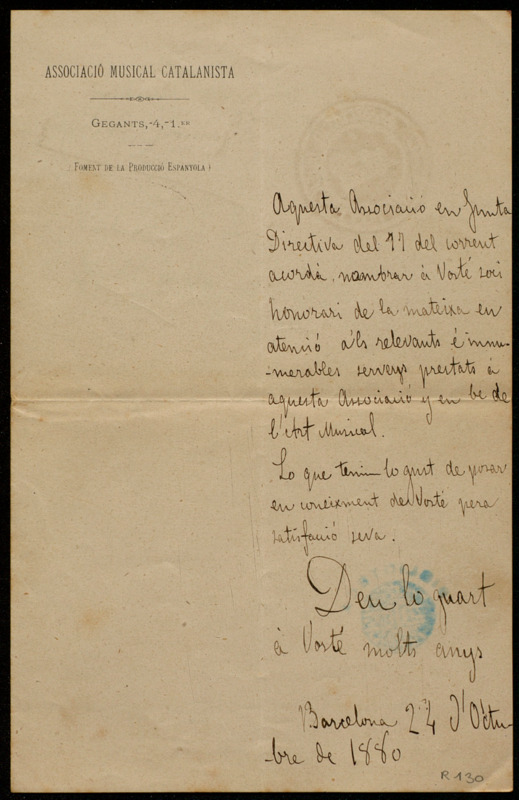 ASSOCIACIÓ MUSICAL CATALANISTA
GEGANTS, 4, 1.ER
(FOMENT DE LA PRODUCCIÓ ESPANYOLA)
Aquesta Associació en Junta
Directiva del 17 del corrent
acordà nombrar à Vosté soci
honorari de la mateixa en
atenció á'ls relevants é innu-
-merables serveys prestats à
aquesta Associació y en be de
l'Art Musical.
Lo que tenim lo gust de posar
en coneixment de Vosté pera
satisfació seva.
Deu lo guart
à Vosté molts anys
Barcelona 24 d'Octu-
-bre de 1880
R 130